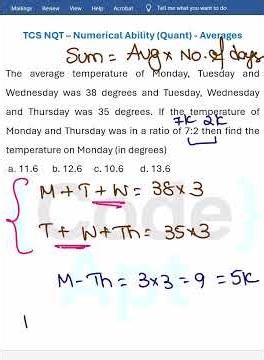 Mailings Review View Help Acrobat Tell me what you want to do
TCS NQT – Numerical Ability (Quant) - Averages
Sum = Avg x No. of days
The average temperature of Monday, Tuesday and
Wednesday was 38 degrees and Tuesday, Wednesday
and Thursday was 35 degrees. If the temperature of
7K 2K
Monday and Thursday was in a ratio of 7:2 then find the
temperature on Monday (in degrees)
a. 11.6 b. 12.6 c. 10.6 d. 13.6
M + T + W = 38 x 3
T + W + Th = 35 x 3
M - Th = 3 x 3 = 9 = 5K